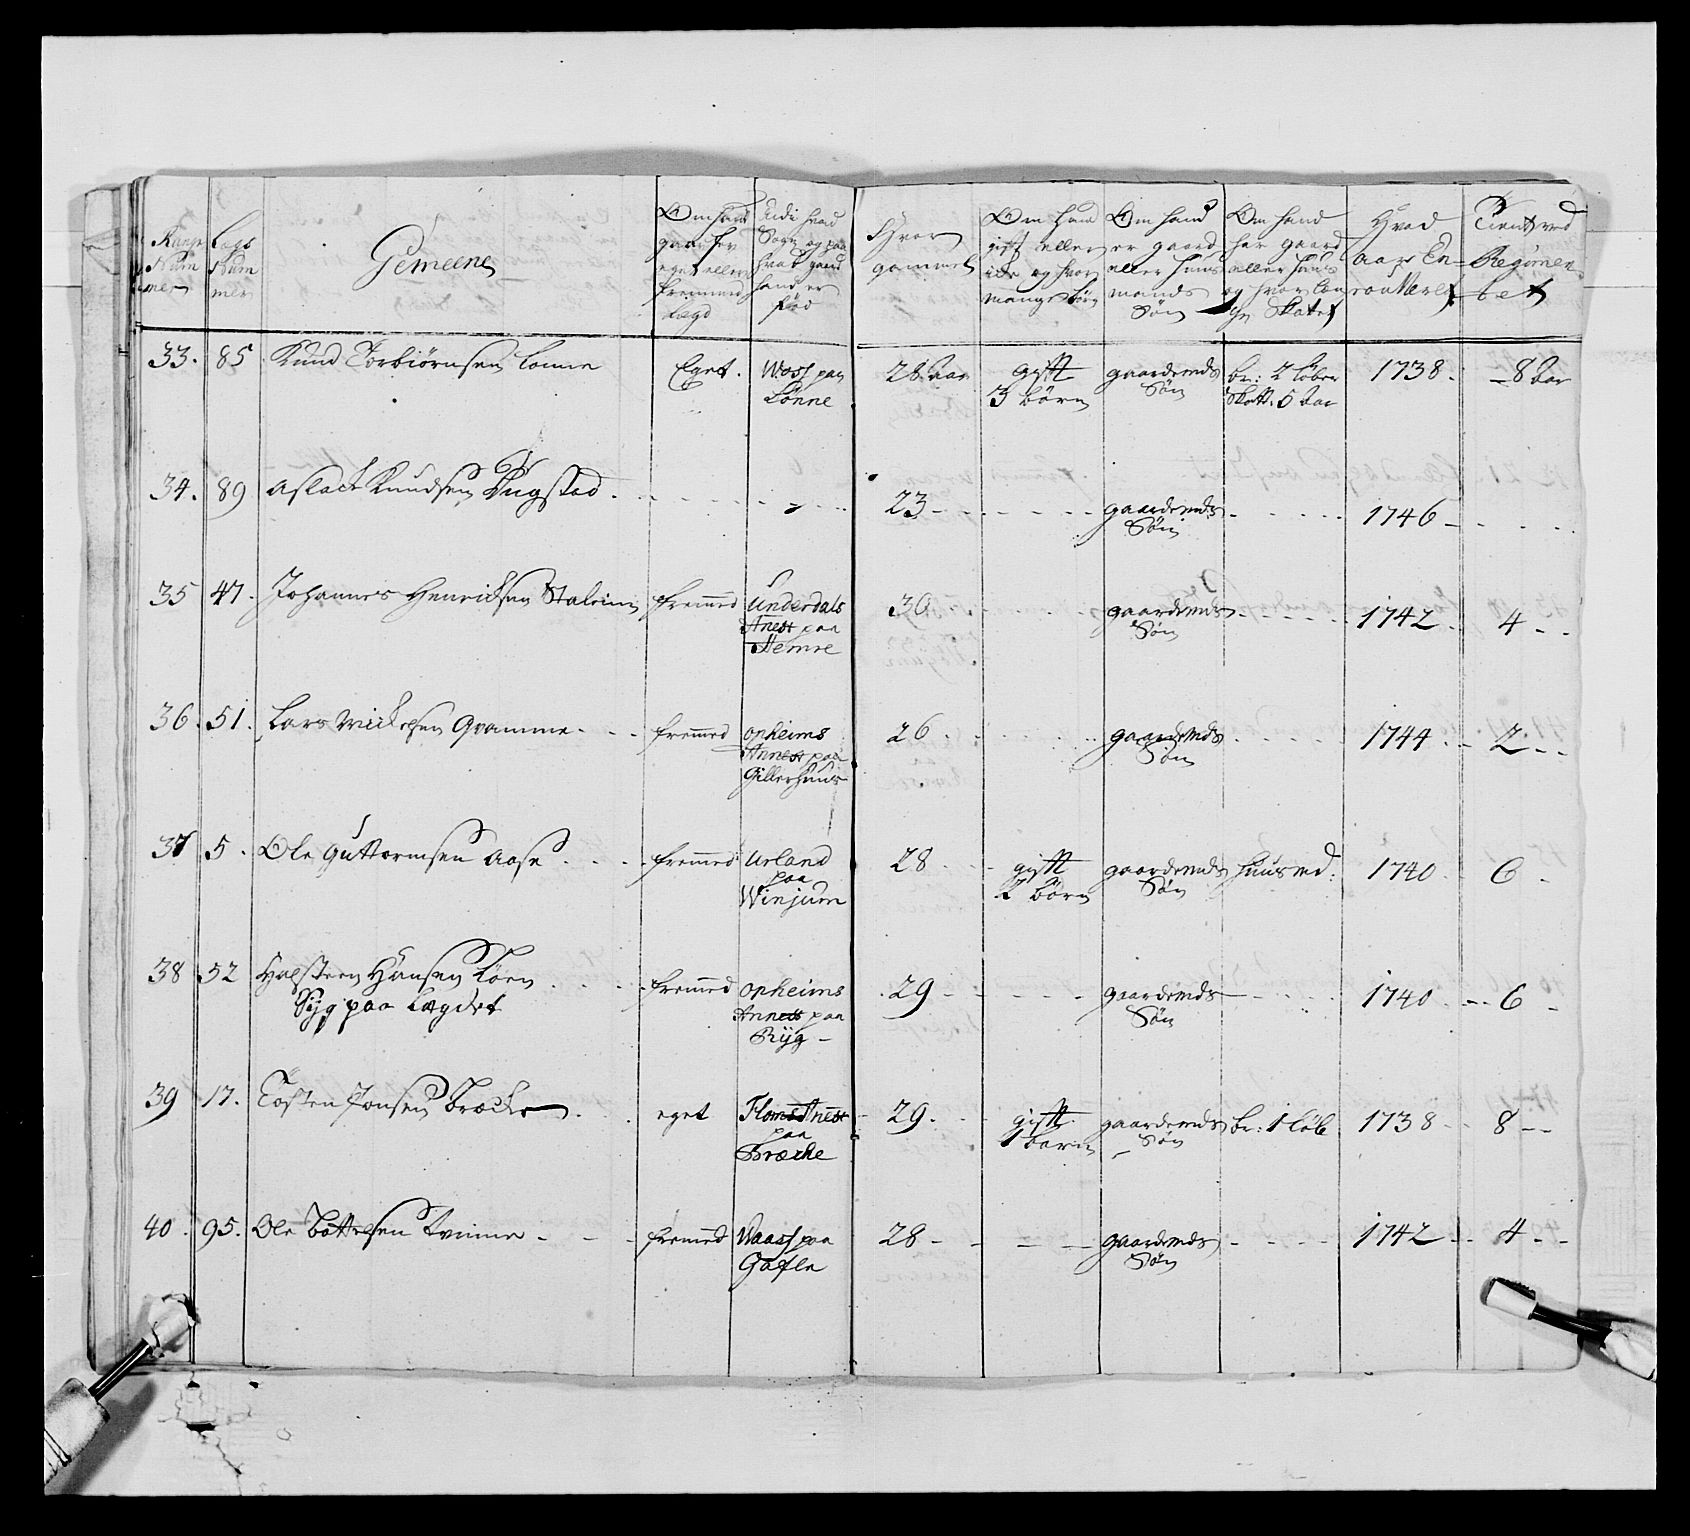 Rang Num mer
Lægs Num mer
Gemeene
Om hand gaar for eget eller fremmed Lægd
Udi hvad Sogn og paa hvad gaard hand er fød
Hvor gammel
Om hand gift eller icke og hvor mange børn
Om hand er gaard eller huus mands Søn
Om hand har gaard eller huus og hvor
Hvad aar En roulleret
Tient ved Regimen tet
33. 85 Knud Torbiörnsen Lonne Eget. Woss paa Lönne 28 aar gift 3 börn gaardmds Søn br: 2 löber Skatt. 5 1738. 8 aar
34. 89 Aslack Knudsen Dugstad 23 gaardmds Søn 1746
35 47. Johannes Henricksen Stalem fremmed Underdals Anest paa Hemre 30 gaardmds Søn 1742 4
36. 51. Lars Mickelsen Qvamme fremmed Opheims Annest paa Gillerhuus 26 gaardmds Søn 1744 2
37 5. Ole Guttormsen Aase fremmed Urland paa Winjum 28 gift 2 börn gaardmds Søn huusmd: 1740 6
38 52 Halsteen Hansen Löen fremmed Opheims Annest paa Ryg 29 gaardmds Søn 1740 6
Syg paa Lægdet
39 17. Tosten Jonsen Brecke eget Floms Anest paa Bræcke 29. gift 1 barn gaardmds Søn br: 1 löb 1738 8
40. 95. Ole Bottelsen Tvinne fremmed Waass paa Gafle 28 gaardmds Søn 1742 4